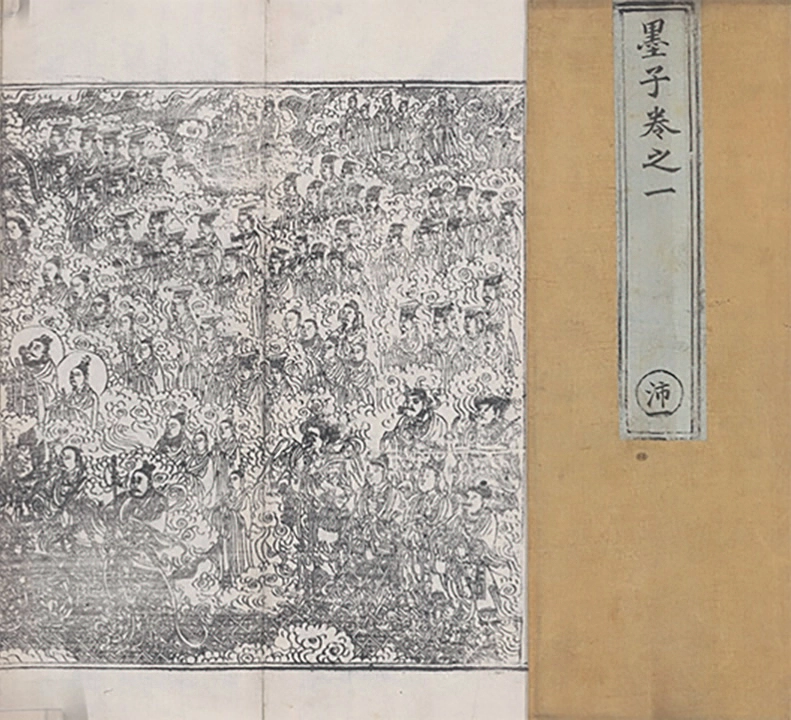 墨子卷之一
沛一